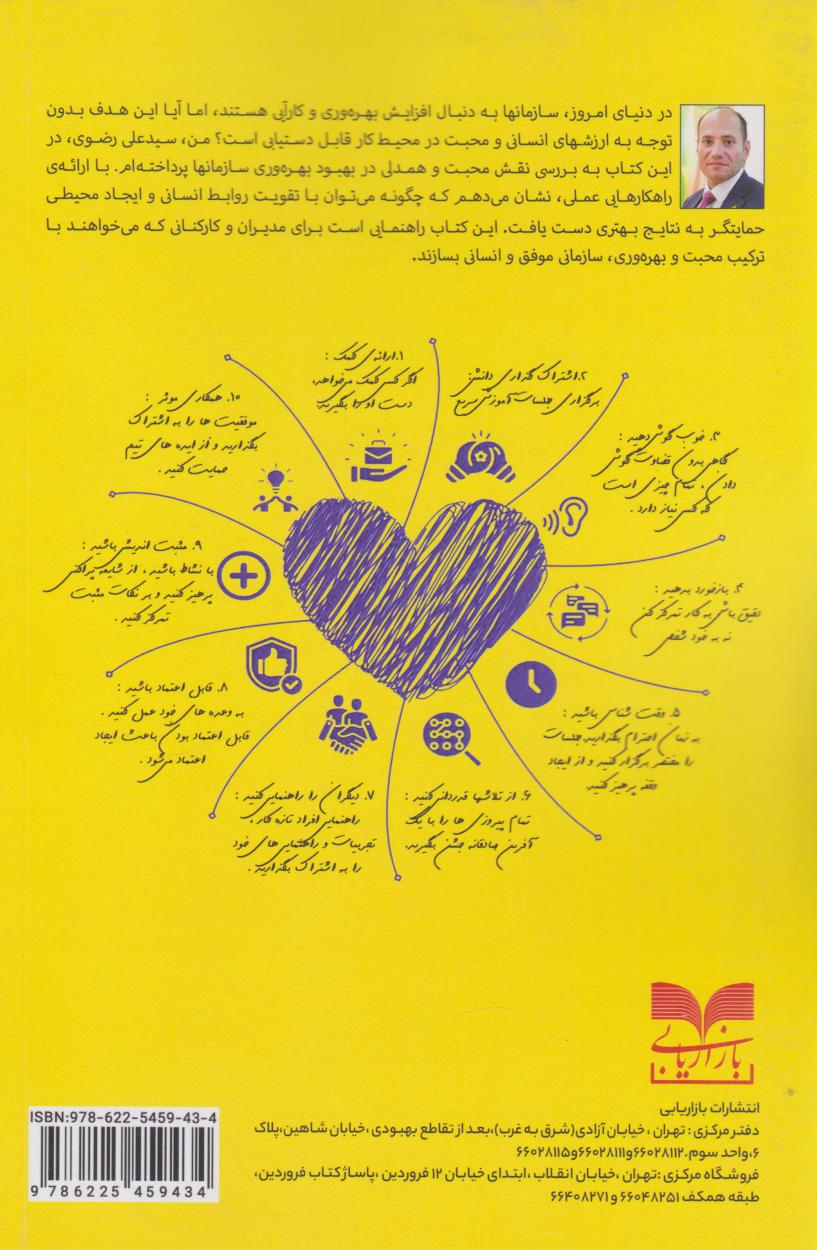 در دنیای امروز، سازمانها به دنبال افزایش بهره‌وری و کارآیی هستند، اما آیا این هدف بدون
توجه به ارزشهای انسانی و محبت در محیط کار قابل دستیابی است؟ من، سیدعلی رضوی، در
این کتاب به بررسی نقش محبت و همدلی در بهبود بهره‌وری سازمانها پرداخته‌ام. با ارائه‌ی
راهکارهایی عملی، نشان می‌دهم که چگونه می‌توان با تقویت روابط انسانی و ایجاد محیطی
حمایتگر به نتایج بهتری دست یافت. این کتاب راهنمایی است برای مدیران و کارکنانی که می‌خواهند با
ترکیب محبت و بهره‌وری، سازمانی موفق و انسانی بسازند.
۱. ارائه‌ی کمک :
اگر کسی کمک می‌خواهد،
دست او را بگیرید.
۲. اشتراک گذاری دانش:
برگزاری جلسات آموزشی سریع
۳. خوب گوش دهید :
گاهی بدون قضاوت گوش
دادن، تمام چیزی است
که کسی نیاز دارد .
۴. بازخورد بدهید :
دقیق باش به کار تمرکز کن
نه به خود شخص
۵. وقت شناس باشید :
به زمان احترام بگذارید جلسات
را مختصر برگزار کنید و از ایجاد
وقفه پرهیز کنید.
۶. از تلاشها قدردانی کنید :
تمام پیروزی ها را با یک
آفرین صادقانه جشن بگیرید.
۷. دیگران را راهنمایی کنید :
راهنمایی افراد تازه کار ،
تجربیات و راهنمایی های خود
را به اشتراک بگذارید .
۸. قابل اعتماد باشید :
به وعده های خود عمل کنید .
قابل اعتماد بودن باعث ایجاد
اعتماد می‌شود .
۹. مثبت اندیش باشید :
با نشاط باشید ، از شایعه پراکنی
پرهیز کنید و بر نکات مثبت
تمرکز کنید .
۱۰. همکاری موثر :
موفقیت ها را به اشتراک
بگذارید و از ایده های تیم
حمایت کنید .
بازاریابی
انتشارات بازاریابی
دفتر مرکزی : تهران ، خیابان آزادی(شرق به غرب)،بعد از تقاطع بهبودی ،خیابان شاهین،پلاک
۶،واحد سوم.۶۶۰۲۸۱۱۲و۶۶۰۲۸۱۱۱و۶۶۰۲۸۱۱۵
فروشگاه مرکزی :تهران ،خیابان انقلاب ،ابتدای خیابان ۱۲ فروردین ،پاساژ کتاب فروردین،
طبقه همکف ۶۶۰۴۸۲۵۱ و ۶۶۴۰۸۲۷۱
ISBN:978-622-5459-43-4
9 786225 459434